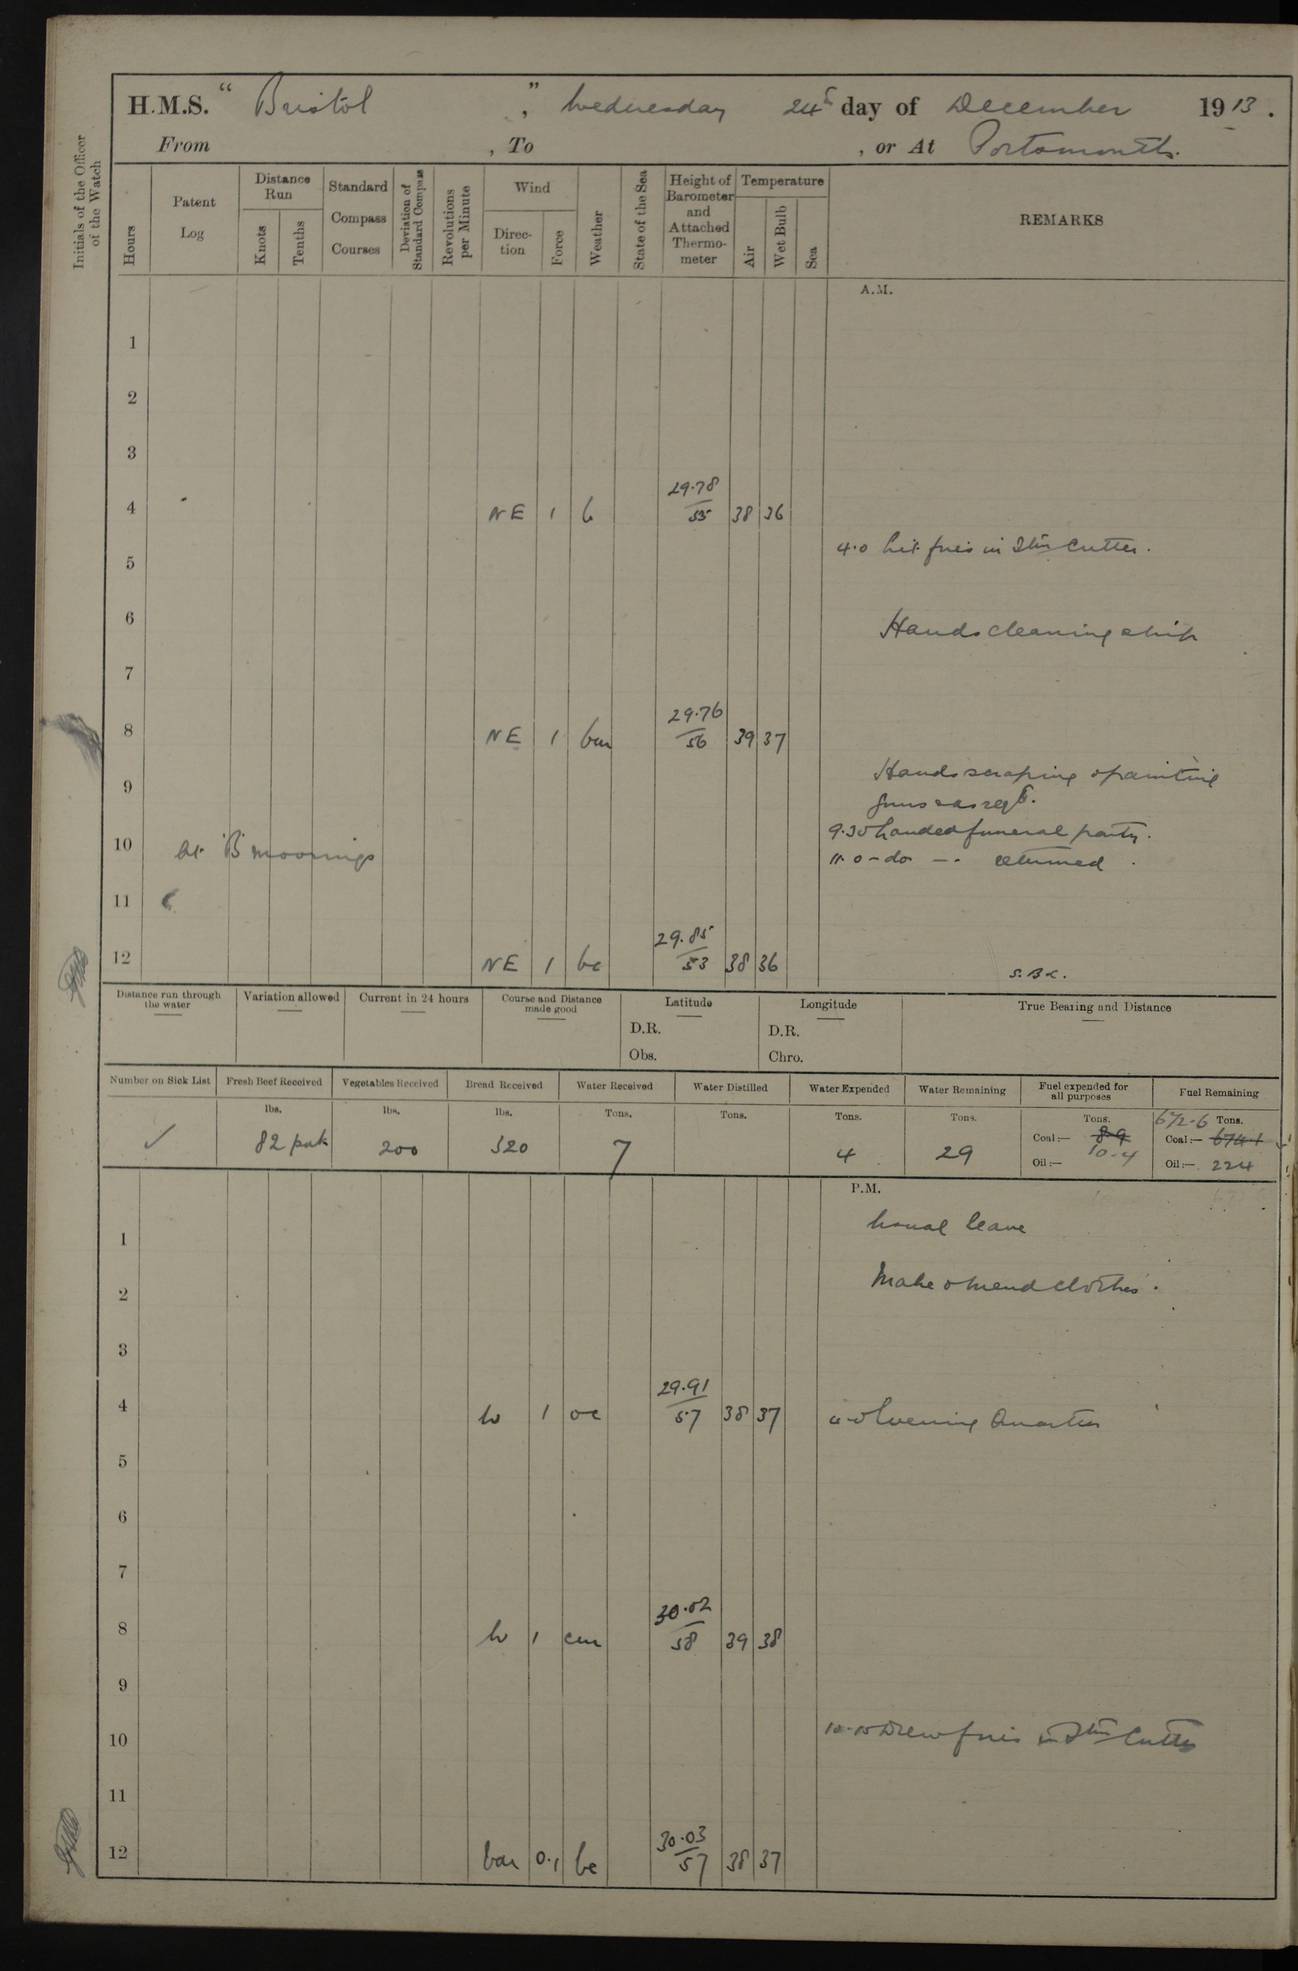 H.M.S. “ Bristol ” , Wednesday 24th day of December 1913 .
From , To , or At Portsmouth.
Initials of the Officer of the Watch
Hours
Patent Log
Distance Run
Knots
Tenths
Standard Compass Courses
Deviation of Standard Compass
Revolutions per Minute
Wind
Direction
Force
Weather
State of the Sea
Height of Barometer and Attached Thermometer
Temperature
Air
Wet Bulb
Sea
REMARKS
A.M.
1
2
3
4 NE 1 b 29.78 / 55 38 36
4.0 Lit fires in Stm Cutter.
5
6 Hands cleaning ship
7
8 NE 1 bm 29.76 / 56 39 37
Hands scraping & painting
9
funnel as reqd.
9.30 Landed funeral party.
10 At 'B' moorings
11.0 - do - - returned .
11
12 NE 1 bc 29.85 / 53 38 36
Distance run through the water
Variation allowed
Current in 24 hours
Course and Distance made good
Latitude
D.R.
Obs.
Longitude
D.R.
Chro.
True Bearing and Distance
Number on Sick List
Fresh Beef Received
Vegetables Received
Bread Received
Water Received
Water Distilled
Water Expended
Water Remaining
Fuel expended for all purposes
Fuel Remaining
lbs. lbs. lbs. Tons. Tons. Tons. Tons. Tons. 672.6 Tons.
✓ 82 pork 200 320 7 4 29
Coal:— 8.9 10.4 Coal:— 674.1
Oil:— Oil:— 224
P.M.
1 Usual leave
2 Make & mend clothes.
3
4 W 1 oc 29.91 / 57 38 37 4.0 Evening Quarters
5
6
7
8 W 1 cm 30.02 / 58 39 38
9
10 10.15 Drew fires in Stm Cutter
11
12 Var 0.1 bc 30.03 / 57 38 37